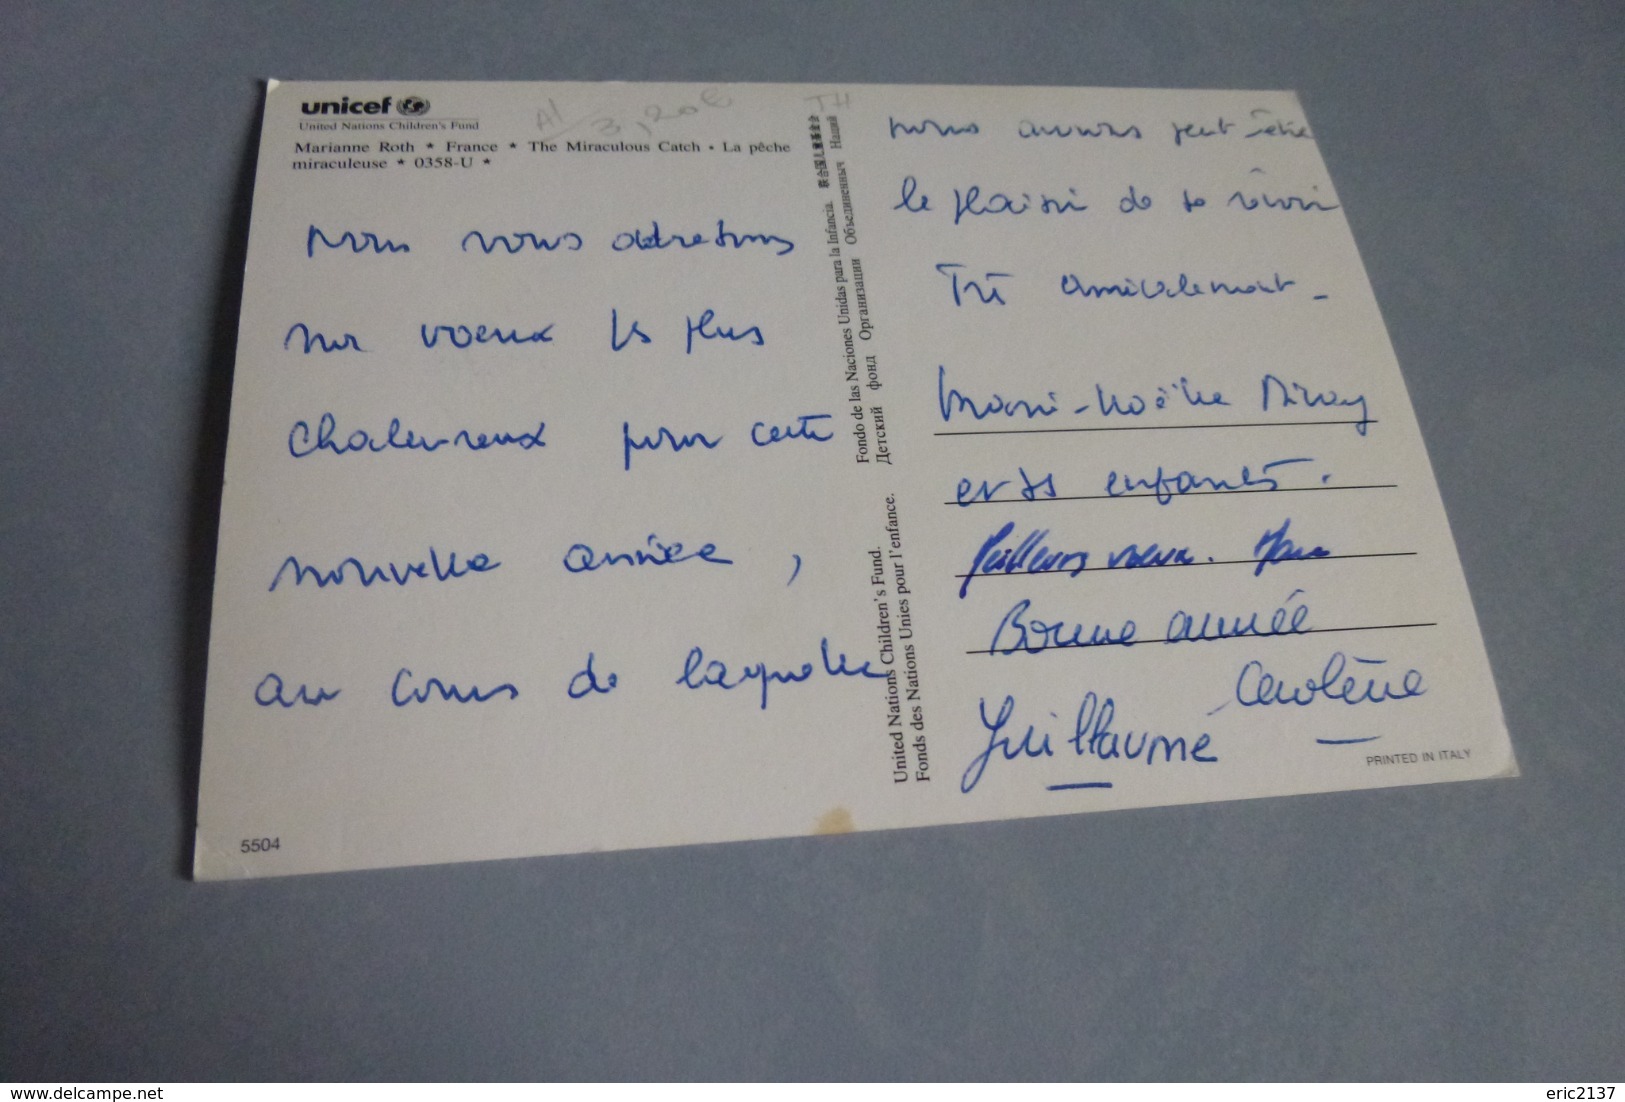 unicef
United Nations Children's Fund
Marianne Roth * France * The Miraculous Catch • La pêche
miraculeuse * 0358-U *
Al
3,20€
JH
Nous vous adressons
nos voeux les plus
chaleureux pour cette
nouvelle année,
au cours de laquelle
5504
United Nations Children's Fund. Fondo de las Naciones Unidas para la Infancia. 联合国儿童基金会
Fonds des Nations Unies pour l'enfance. Детский фонд Организации Объединенных Наций
nous aurons peut être
le plaisir de se revoir
Très amicalement -
Marie-Noëlle
et ses enfants.
Meilleurs voeux.
Bonne année
Carolène
Guillaume
PRINTED IN ITALY
www.delcampe.net
eric2137